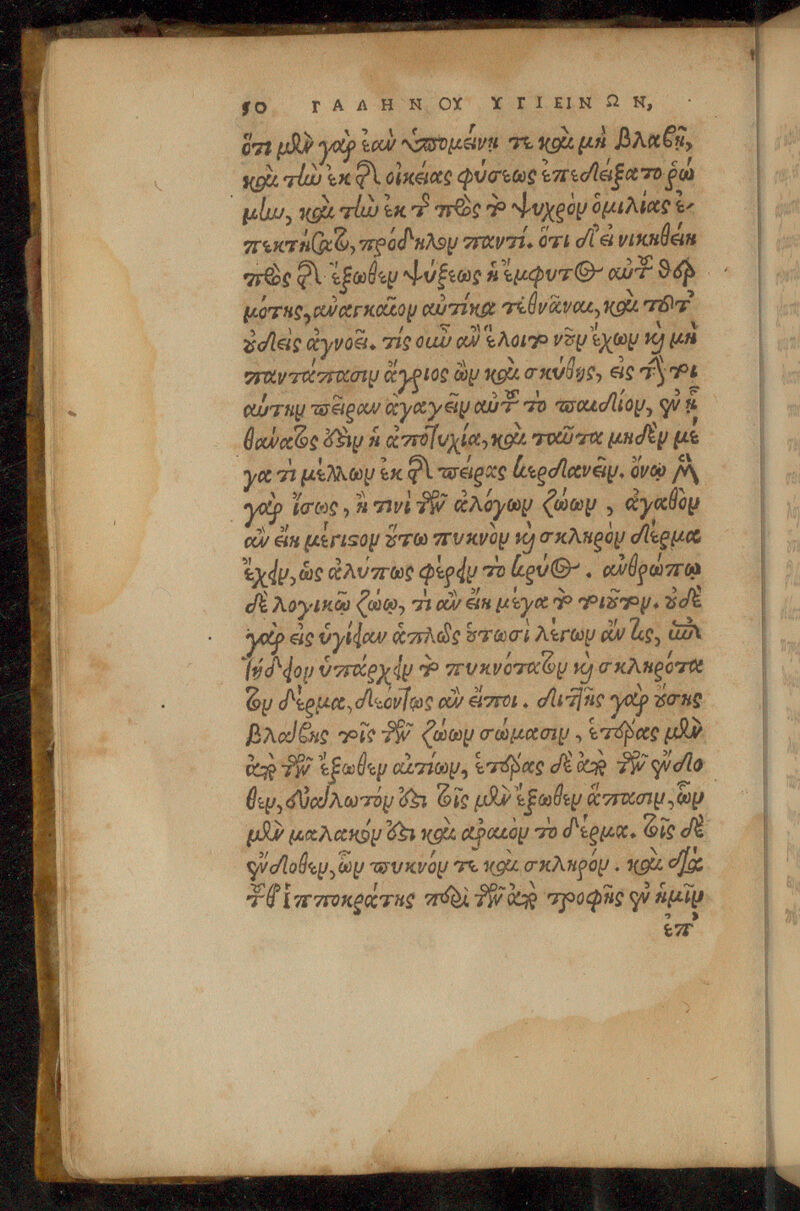 50 ΓΑΛΗΝΟΥ ΥΓΙΕΙΝΩΝ,
ὅτι μὲν γὰρ ἐὰν ὑπομείνῃ τε καὶ μὴ βλαβῇ,
καὶ τὴν ἐκ τῆς οἰκείας φύσεως ἐπεδείξατο ῥώ
μην, καὶ τὴν ἐκ τῆς πρὸς τὸ ψυχρὸν ὁμιλίας ἐ-
πεκτήσατο, πρόδηλον παντί. ὅτι δ' εἰ νικηθείη
πρὸς τῆς ἔξωθεν ψύξεως ἡ ἔμφυτος αὐτοῦ θερ
μότης, ἀναγκαῖον αὐτίκα τεθνάναι, καὶ τοῦτ'
οὐδεὶς ἀγνοεῖ. τίς οὖν ἂν ἕλοιτο νοῦν ἔχων καὶ μὴ
παντάπασιν ἄγριος ὢν καὶ σκύθης, εἰς τὴν τοι
αύτην πεῖραν ἀγαγεῖν αὐτοῦ τὸ παιδίον, ἐν ᾗ
θάνατός ἐστιν ἡ ἀποτυχία, καὶ ταῦτα μηδὲν μέ
γα τι μέλλων ἐκ τῆς πείρας κερδανεῖν. ὄνῳ μὲν
γὰρ ἴσως, ἤ τινι τῶν ἀλόγων ζώων, ἀγαθὸν
ἂν εἴη μέγιστον οὕτω πυκνὸν καὶ σκληρὸν δέρμα
ἔχειν, ὡς ἀλύπως φέρειν τὸ κρύος. ἀνθρώπῳ
δὲ λογικῷ ζώῳ, τί ἂν εἴη μέγα τὸ τοιοῦτον. οὐδὲ
γὰρ εἰς ὑγίειαν ἁπλῶς οὑτωσὶ λέγων ἄν τις, ἀλλ'
ὑπάρχειν τὸ πυκνότατον καὶ σκληρότα
τον δέρμα, δεόντως ἂν εἴποι. διττῆς γὰρ οὔσης
βλάβης τοῖς τῶν ζώων σώμασιν, ἑτέρας μὲν
ἀπὸ τῶν ἔξωθεν αἰτίων, ἑτέρας δὲ ἀπὸ τῶν ἔνδο
θεν, εὐάλωτόν ἐστι τοῖς μὲν ἔξωθεν ἅπασιν, ὧν
μὲν μαλακόν ἐστι καὶ ἀραιὸν τὸ δέρμα. τοῖς δὲ
ἔνδοθεν, ὧν πυκνόν τε καὶ σκληρόν. καὶ διὰ
τοῦθ' Ἱπποκράτης περὶ τῶν ἀπὸ τροφῆς ἐν ἡμῖν
ἐπ'